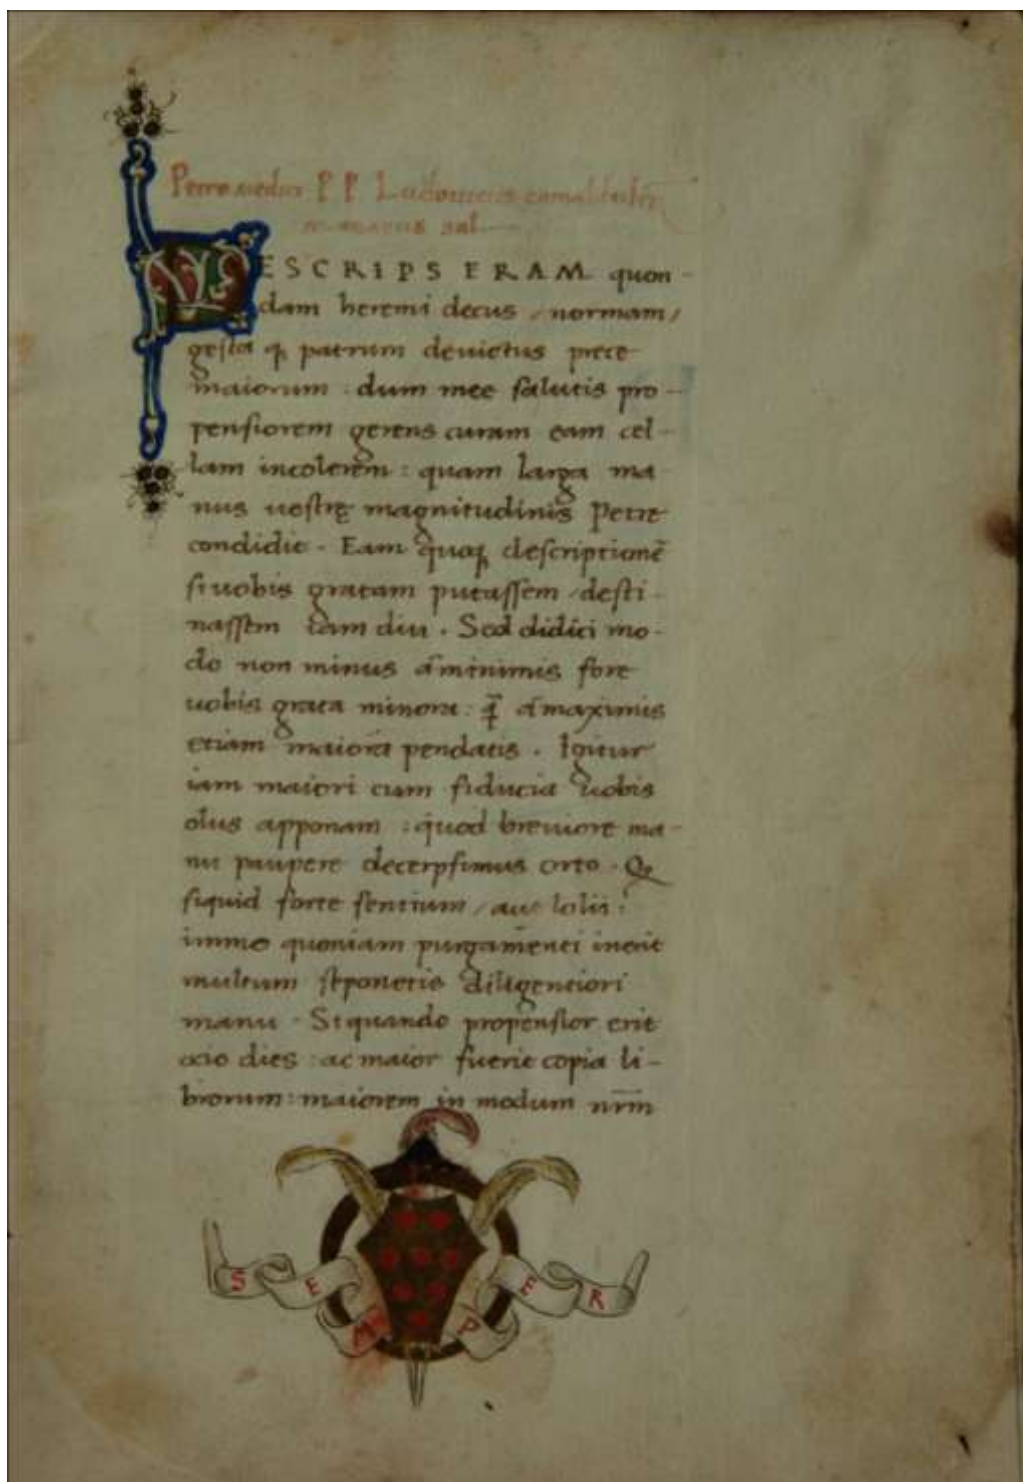 Petro medici P P Ludouicus camaldulen
monacus sal
DESCRIPSERAM quon-
dam heremi decus / normam /
gesta q; patrum deuictus prece
maiorum : dum mee salutis pro-
pensiorem gerens curam eam cel-
lam incolerem : quam larga ma
nus uestrę magnitudinis Petre
condidit . Eam quoq; descriptionē
si uobis gratam putassem / desti-
nassem iam diu . Sed didici mo-
do non minus a minimis fore
uobis grata minora : q̄ a maximis
etiam maiora pendatis . Igitur
iam maiori cum fiducia uobis
olus apponam : quod breuiore ma-
nu paupere decerpsimus orto .
siquid forte sentium / aut lolii :
immo quoniam purgamenti inerit
multum seponetis diligentiori
manu . Si quando propensior erit
ocio dies : ac maior fuerit copia li-
brorum : maiorem in modum nr̄m
SEMPER